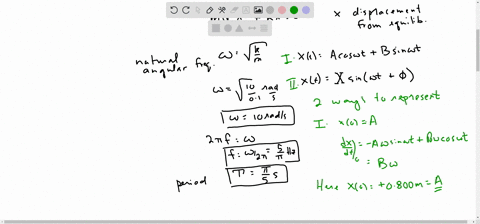 x displacement
from equilib.
natural
angular freq. ω = √k/m
ω = √10/0.1 rad/s
ω = 10 rad/s
2πf = ω
f = ω/2π = 5/π Hz
period T = π/5 s
I. x(t) = A cos ωt + B sin ωt
II x(t) = X sin(ωt + φ)
2 ways to represent
I. x(0) = A
dx/dt|₀ = -Aω sin ωt + Bω cos ωt
= Bω
Here x(0) = +0.800m = A